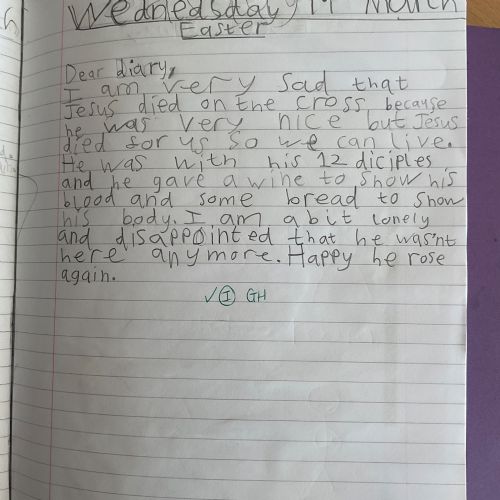 Wednesday March
Easter
Dear diary,
I am very sad that
Jesus died on the cross because
he was very nice but Jesus
died for us so we can live.
He was with his 12 diciples
and he gave a wine to show his
blood and some bread to show
his body. I am a bit lonely
and disappointed that he wasn't
here anymore. Happy he rose
again.
✓ I GH